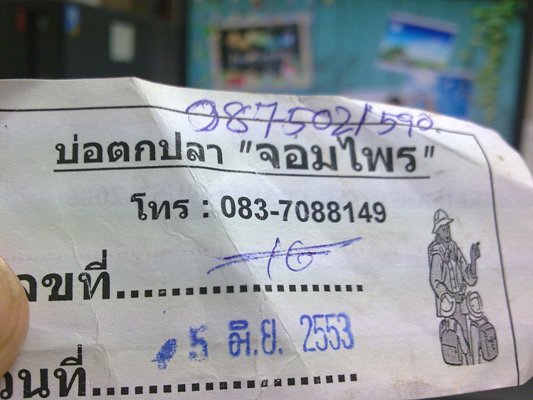 0875021590
บ่อตกปลา "จอมไพร"
โทร : 083-7088149
ลขที่.......................
16
5 มิ.ย. 2553
วนที่.......................